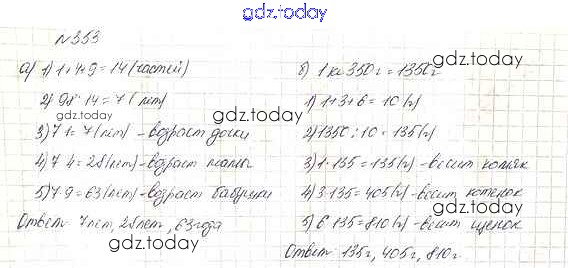 gdz.today
№353
gdz.today
а) 1) 1+4+9=14 (частей)
2) 98:14=7 (лет)
3) 7·1=7 (лет) - возраст дочки
4) 7·4=28 (лет) - возраст мамы
5) 7·9=63 (лет) - возраст бабушки
Ответ: 7 лет, 28 лет, 63 года
gdz.today
gdz.today
б) 1 кг 350 г = 1350 г
gdz.today
1) 1+3+6=10 (ч)
2) 1350:10=135 (г)
3) 1·135=135 (г) - весит хомяк
4) 3·135=405 (г) - весит котенок
gdz.today
5) 6·135=810 (г) - весит щенок
Ответ: 135 г, 405 г, 810 г.